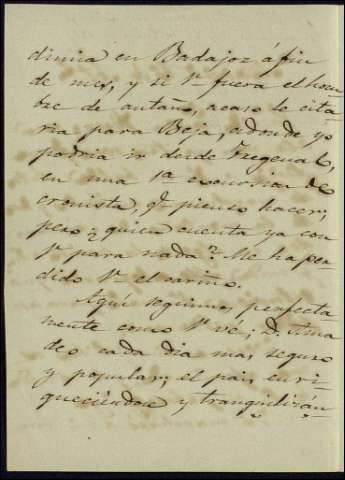 dinia en Badajoz á fin
de mes, y si V. fuera el hom-
bre de antaño, acaso le cita-
ria para Beja, adonde yo
podria ir desde Fregenal,
en una 1ª excursion de
cronista, q. pienso hacer;
pero ¿quien cuenta ya con
V. para nada? Me ha per-
dido V. el cariño.
Aquí seguimos perfecta-
mente como V. vé; D. Ama-
deo cada dia mas seguro
y popular; el pais enri-
queciéndose y tranquilizán-